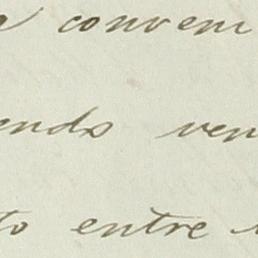 a conveni
endo ven
to entre